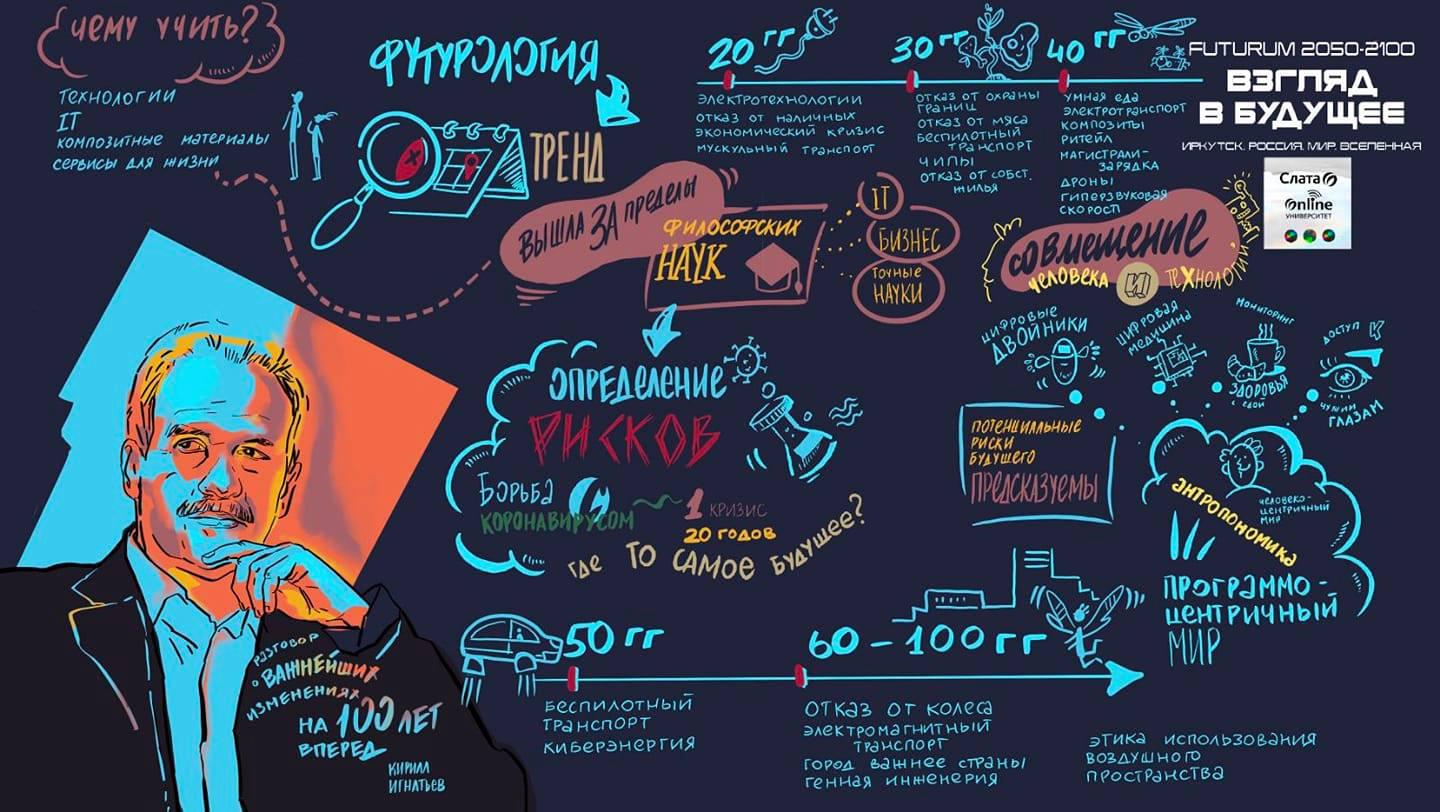 ЧЕМУ УЧИТЬ?
ТЕХНОЛОГИИ
IT
КОМПОЗИТНЫЕ МАТЕРИАЛЫ
СЕРВИСЫ ДЛЯ ЖИЗНИ
ФУТУРОЛОГИЯ
ТРЕНД
ВЫШЛА ЗА ПРЕДЕЛЫ
ФИЛОСОФСКИХ
НАУК
IT
БИЗНЕС
ТОЧНЫЕ
НАУКИ
20 гг
ЭЛЕКТРОТЕХНОЛОГИИ
ОТКАЗ ОТ НАЛИЧНЫХ
ЭКОНОМИЧЕСКИЙ КРИЗИС
МУСКУЛЬНЫЙ ТРАНСПОРТ
30 гг
ОТКАЗ ОТ ОХРАНЫ
ГРАНИЦ
ОТКАЗ ОТ МЯСА
БЕСПИЛОТНЫЙ
ТРАНСПОРТ
ЧИПЫ
ОТКАЗ ОТ СОБСТ.
ЖИЛЬЯ
40 гг
УМНАЯ ЕДА
ЭЛЕКТРОТРАНСПОРТ
КОМПОЗИТЫ
РИТЕЙЛ
МАГИСТРАЛИ-
ЗАРЯДКА
ДРОНЫ
ГИПЕРЗВУКОВАЯ
СКОРОСТЬ
FUTURUM 2050-2100
ВЗГЛЯД
В БУДУЩЕЕ
ИРКУТСК. РОССИЯ. МИР. ВСЕЛЕННАЯ
Слата
Online
УНИВЕРСИТЕТ
СОВМЕЩЕНИЕ
ЧЕЛОВЕКА И ТЕХНОЛОГИИ
ЦИФРОВЫЕ
ДВОЙНИКИ
ЦИФРОВАЯ
МЕДИЦИНА
МОНИТОРИНГ
ЗДОРОВЬЯ
ЕДОЙ
ДОСТУП К
ЧУЖИМ
ГЛАЗАМ
ПОТЕНЦИАЛЬНЫЕ
РИСКИ
БУДУЩЕГО
ПРЕДСКАЗУЕМЫ
АНТРОПОНОМИКА
ЧЕЛОВЕКО-
ЦЕНТРИЧНЫЙ
МИР
ПРОГРАММО-
ЦЕНТРИЧНЫЙ
МИР
ОПРЕДЕЛЕНИЕ
РИСКОВ
БОРЬБА С
КОРОНАВИРУСОМ
1 КРИЗИС
20 ГОДОВ
ГДЕ ТО САМОЕ БУДУЩЕЕ?
РАЗГОВОР
О ВАЖНЕЙШИХ
ИЗМЕНЕНИЯХ
НА 100 ЛЕТ
ВПЕРЕД
КИРИЛЛ
ИГНАТЬЕВ
50 гг
БЕСПИЛОТНЫЙ
ТРАНСПОРТ
КИБЕРЭНЕРГИЯ
60 - 100 гг
ОТКАЗ ОТ КОЛЕСА
ЭЛЕКТРОМАГНИТНЫЙ
ТРАНСПОРТ
ГОРОД ВАЖНЕЕ СТРАНЫ
ГЕННАЯ ИНЖЕНЕРИЯ
ЭТИКА ИСПОЛЬЗОВАНИЯ
ВОЗДУШНОГО
ПРОСТРАНСТВА